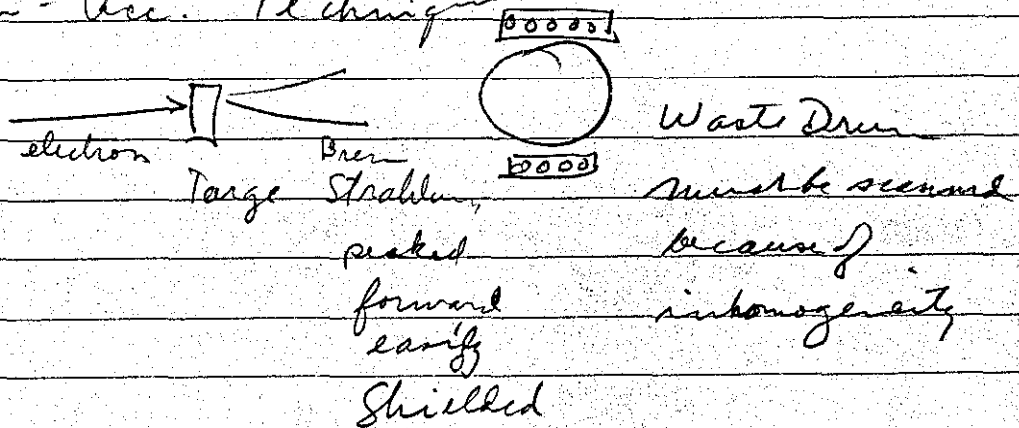 - Acc. Technique
electron
Targe
Brem
Strahlun,
peaked
forward
easily
Shielded
Waste Drum
must be scanned
because of
inhomogeneity